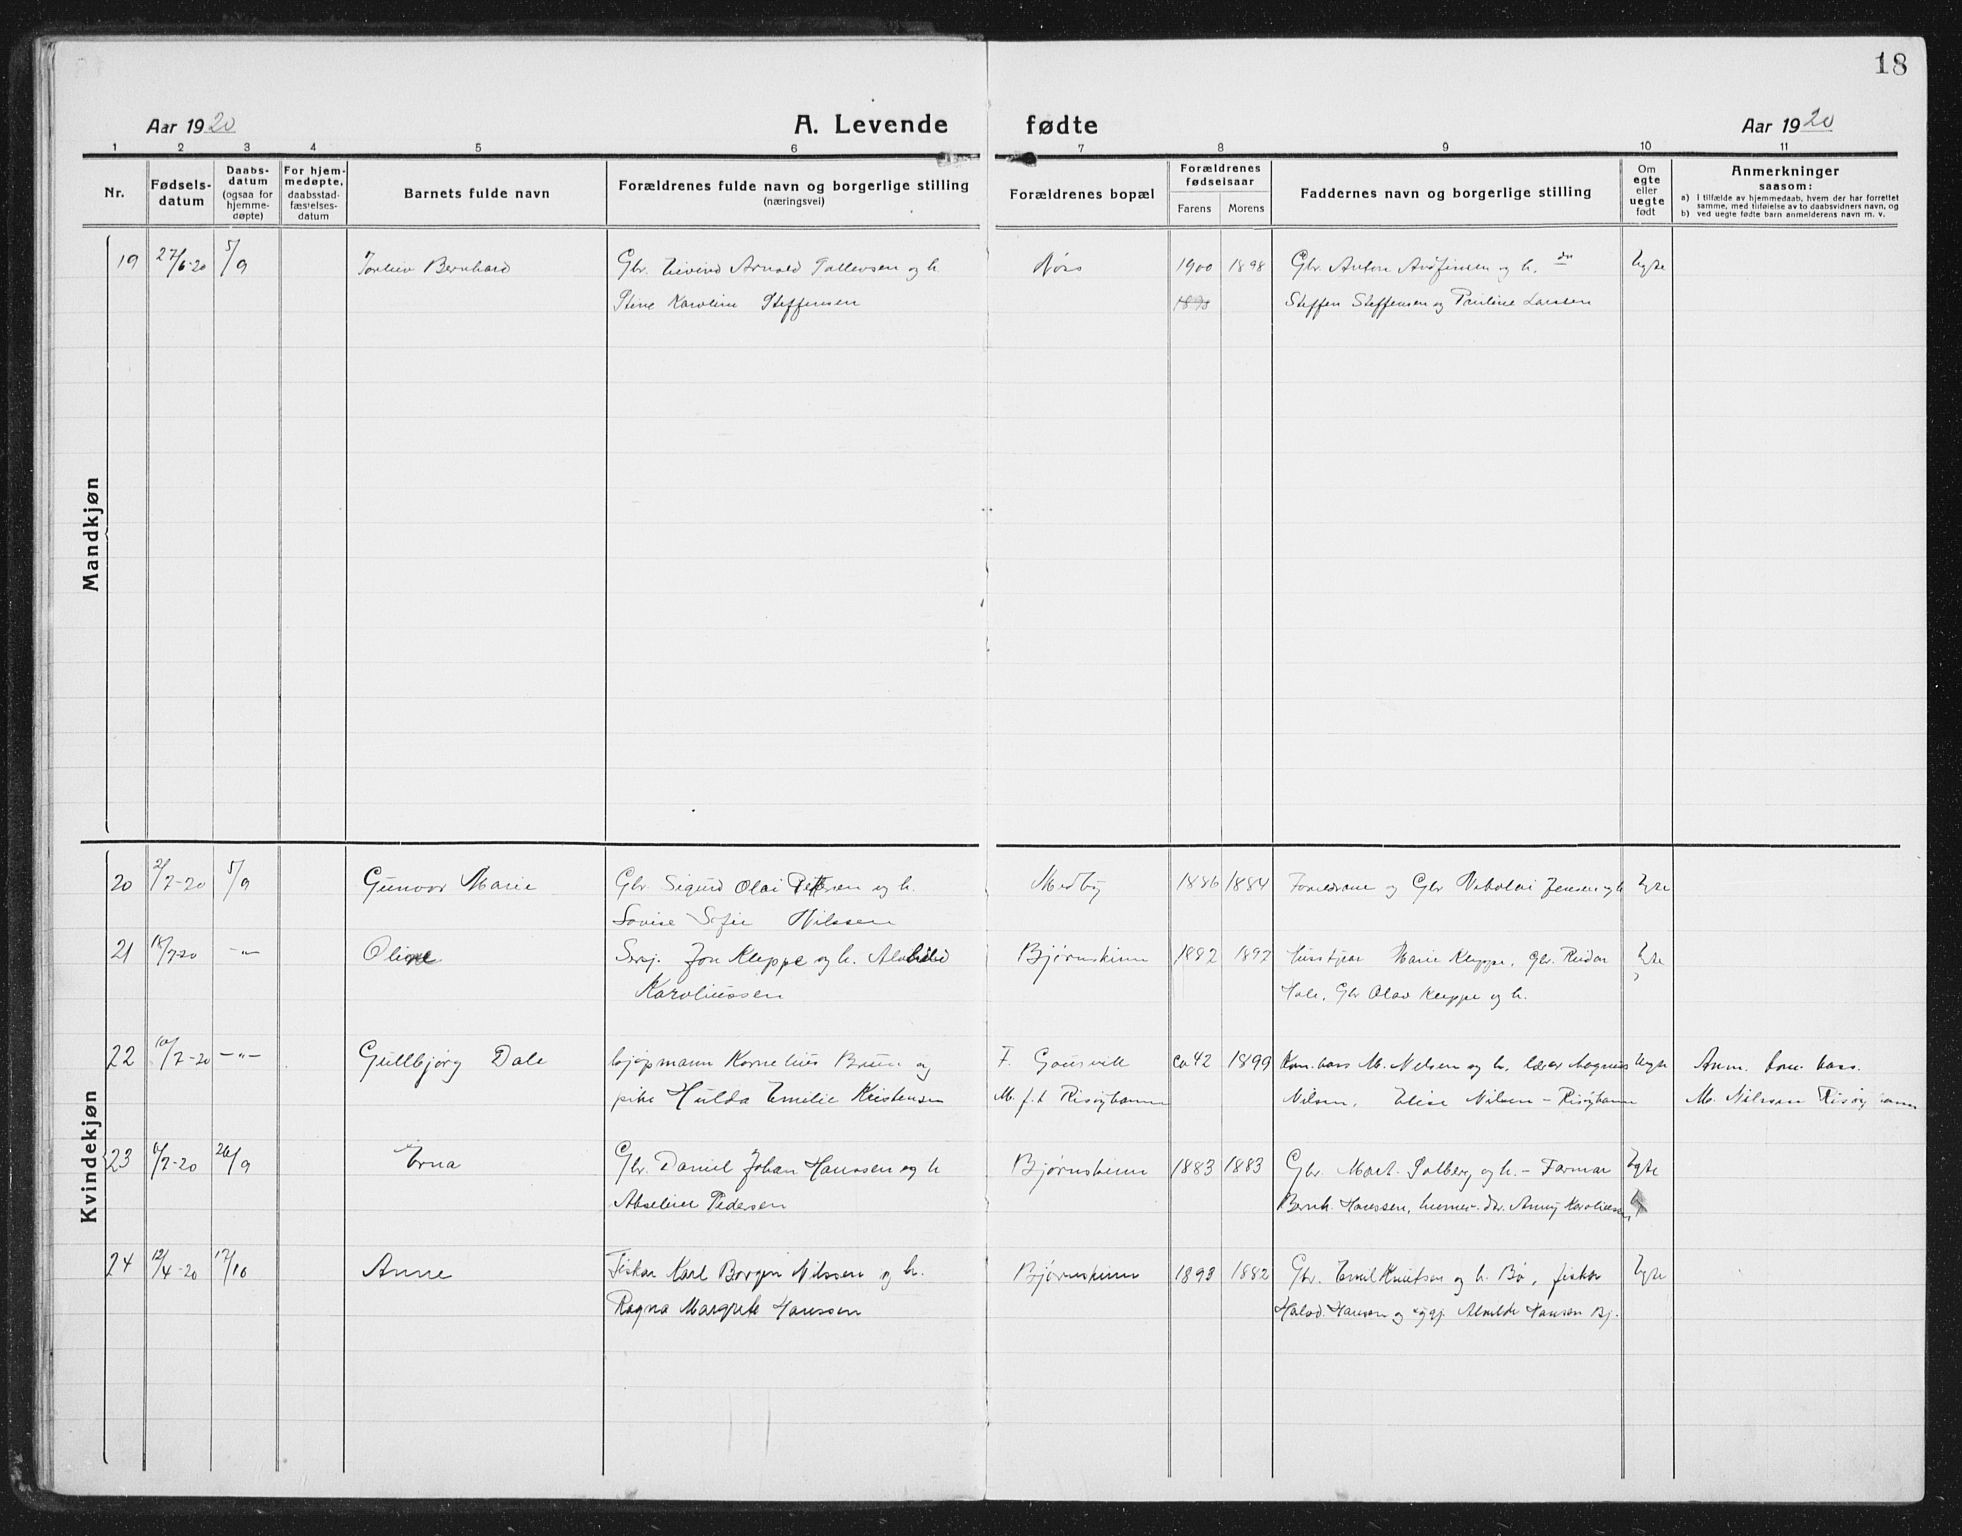 18
Aar 1920
A. Levende fødte
Aar 1920
1 2 3 4 5 6 7 8 9 10 11
Nr.
Fødsels-
datum
Daabs-
datum
(ogsaa for
hjemme-
døpte)
For hjem-
medøpte,
daabsstad-
fæstelses-
datum
Barnets fulde navn
Forældrenes fulde navn og borgerlige stilling
(næringsvei)
Forældrenes bopæl
Forældrenes
fødselsaar
Farens Morens
Faddernes navn og borgerlige stilling
Om
egte
eller
uegte
født
Anmerkninger
saasom:
a) I tilfælde av hjemmedaab, hvem der har forrettet
samme, med tilføielse av to daabsvidners navn, og
b) ved uegte fødte barn anmelderens navn m. v.
Mandkjøn
19 27/6-20 5/9 Bernhard Gbr. Eivind Arnold Tollevsen og h. 1900 1898 Gbr. Anton Arnfinsen og h. Egte
Stine Karoline Steffensen 1898 Steffen Steffensen og Pauline Larsen
Kvindekjøn
20 2/7-20 5/9 Gunvor Marie Gbr Sigurd Olai Pettersen og h. Medby 1886 1884 Forældrene og Gbr Nikolai Jensen og h Egte
Lovise Sofie Nilssen
21 18/7 20 -"- Oline Sersj. Jon Kleppe og h. Bjørnskinn 1882 1892 Hustru Marie Kleppe, Gbr. Reidar Egte
Karoliussen Gbr Olav Kleppe og h.
22 10/7-20 -"- Gullbjørg Dale kjøpmann Kornelius Bruun og F. Gausvik ca 42 1899 M. Nilsen og h. lærer Magnus Uegte Anm.
pike Hulda Emilie Kristensen M. f.t Risøyhamn Nilsen, Elise Nilsen - Risøyhamn M. Nilsen Risøyhamn
23 6/7-20 26/9 Erna Gbr. Daniel Johan Hanssen og h Bjørnskinn 1883 1883 Gbr. Mart. Solberg og h. - Egte
Pedersen Bernh. Hanssen, Anny Karoliussen
24 12/4-20 17/10 Anne Fisker Karl Borgen Nilssen og h. Bjørnskinn 1893 1882 Gbr. Emil Knutsen og h. Bø, fisker Egte
Ragna Margrete Hanssen Halvd. Hansen og Alvilde Hansen Bj.